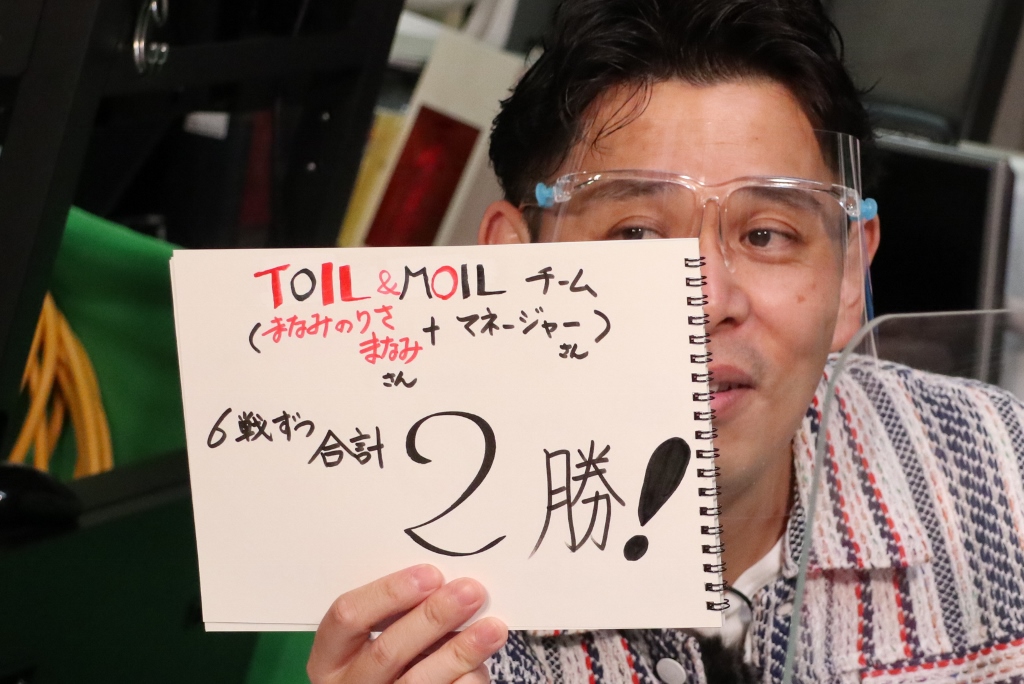 TOIL & MOIL チーム
(まなみのりさ + マネージャー)
まなみ さん
さん
6戦ずつ 合計 2勝!